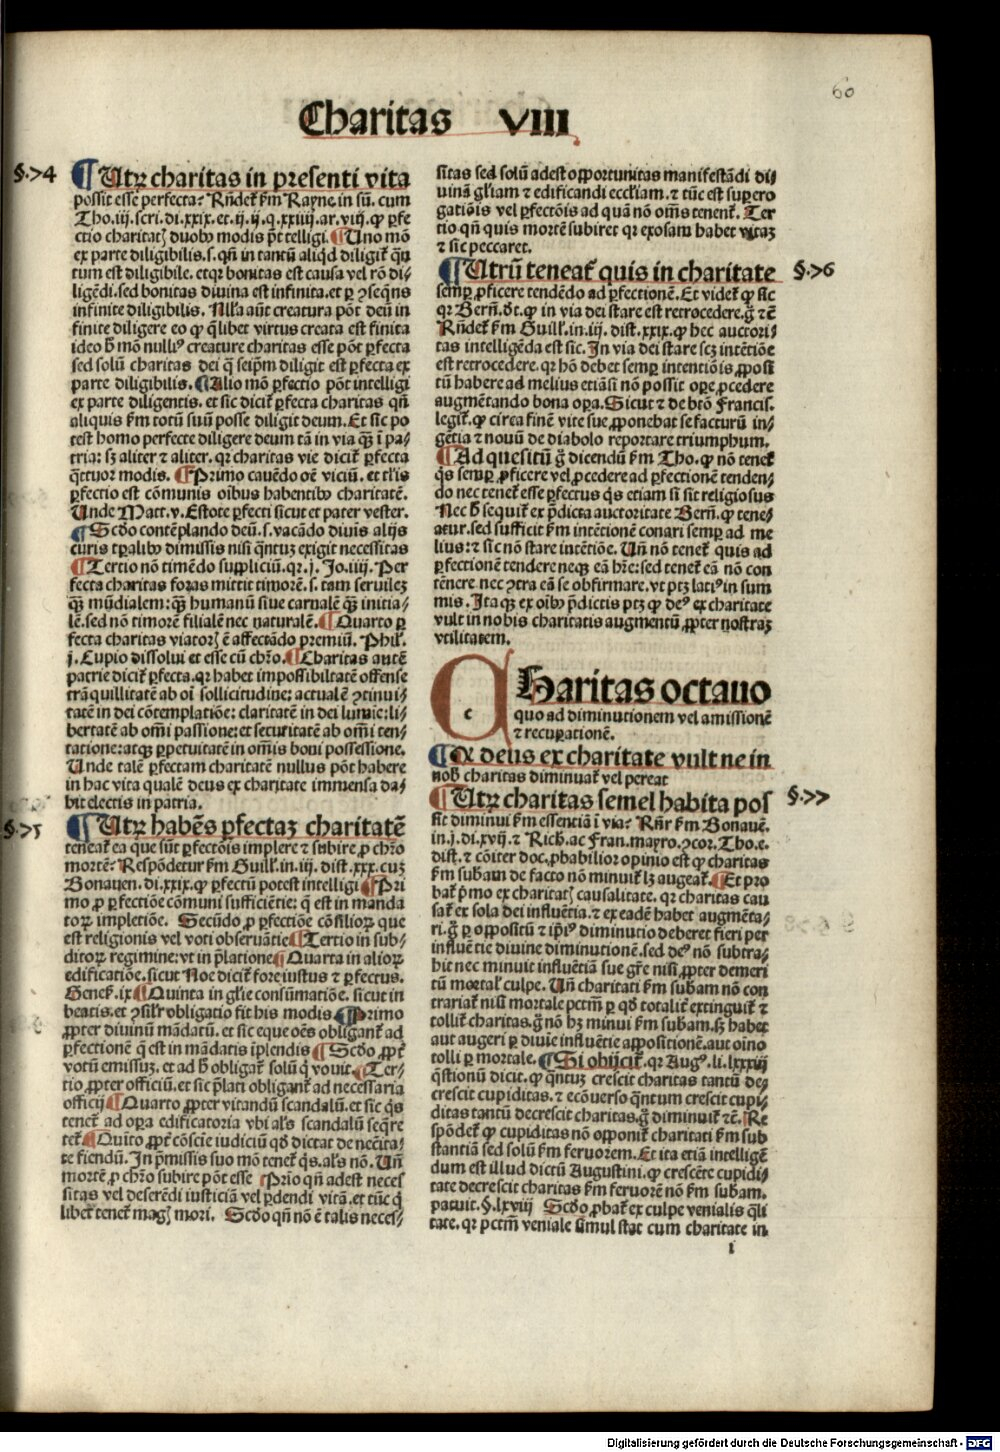 60
Charitas VIII
§.74
¶ Utrꝝ charitas in presenti vita
possit esse perfecta? Rñdet᷑ ẜm Rayne. in sū. cum
Tho. iij. scri. di. xxix. et. ij. ij. q. xxiiij. ar. viij. ꝙ ꝑfe
ctio charitatꝭ duobꝰ modis põt telligi. ¶ Uno mõ
ex parte diligibilis. s. qñ in tantū aliqd diligit᷑ q̃ꝫ
tum est diligibile. et qꝛ bonitas est causa vel rõ di-
ligēdi. sed bonitas divina est infinita. et ꝑ ꝯseq̃ns
infinite diligibilis. Nlla aūt creatura põt deū in
finite diligere eo ꝙ q̃libet virtus creata est finita
ideo ħ mõ nulliꝰ creature charitas esse põt ꝑfecta
sed solū charitas dei q̃ seip̄m diligit est ꝑfecta ex
parte diligibilis. ¶ Alio mõ ꝑfectio põt intelligi
ex parte diligentis. et sic dicit᷑ ꝑfecta charitas qñ
aliquis ẜm totū suū posse diligit deum. Et sic po
test homo perfecte diligere deum tā in via q̃ꝫ ī pa-
tria: sꝫ aliter ⁊ aliter. qꝛ charitas vie dicit᷑ ꝑfecta
q̃ttuor modis. ¶ Primo cauēdo oē viciū. et tl̄is
ꝑfectio est cōmunis oībus habentibꝰ charitatē.
Unde Matt. v. Estote ꝑfecti sicut et pater vester.
¶ Scd̄o contēplando deū. s. vacādo divīs alijs
curis tꝑalibꝰ dimissis nisi q̃ntuꝫ exigit necessitas
¶ Tertio nō timēdo suppliciū. qꝛ. j. Jo. iiij. Per
fecta charitas foras mittit timorē. s. tam servileꝫ
q̃ꝫ mūdialem: q̃ꝫ humanū sive carnalē q̃ꝫ initia-
lē. sed nō timorē filialē nec naturalē. ¶ Quarto ꝑ
fecta charitas viatorꝭ ē affectādo premiū. Phil.
j. Cupio dissolui et esse cū chr̄o. ¶ Charitas autē
patrie dicit᷑ ꝑfecta. qꝛ habet impossibilitatē offense
trāquillitatē ab oī sollicitudine: actualē ꝯtinui-
tatē in dei cōtemplatiōe: claritatē in dei lumīe: li-
bertatē ab om̄i passione: et securitatē ab om̄i ten-
tatione: atqꝫ ꝑpetuitatē in om̄is boni possessione.
Unde talē ꝑfectam charitatē nullus põt habere
in hac vita qualē deus ex charitate immensa da-
bit electis in patria.
§.75
¶ Utrꝝ habēs ꝑfectaꝫ charitatē
teneat᷑ ea que sūt ꝑfectōis implere ⁊ subire ꝓ chr̄o
mortē? Respōdetur ẜm Guill̄. in. iij. dist. xxx. cuꝫ
Bonaven. di. xxix. ꝙ ꝑfectū potest intelligi ¶ Pri
mo ꝓ ꝑfectiōe cōmuni sufficiētie: q̃ est in manda
torꝝ impletiōe. Secūdo ꝓ ꝑfectiōe cōsiliorꝝ que
est religionis vel voti observātie ¶ Tertio in sub-
ditorꝝ regimine: vt in p̄latione ¶ Quarta in aliorꝝ
edificatiōe. sicut Noe dicit᷑ fore iustus ⁊ ꝑfectus.
Genes̄. ix ¶ Quinta in gl̄ie consūmatiōe. sicut in
beatis. et ꝯsil̄r obligatio fit his modis ¶ Primo
ꝓpter divinū mādatū. et sic eque oēs obligant᷑ ad
ꝑfectionē q̃ est in mādatis īplendis ¶ Scd̄o ꝓpt᷑
votū emissuꝫ. et ad ħ obligat᷑ solū q̇ vovit. ¶ Ter-
tio ꝓpter officiū. et sic p̄lati obligant᷑ ad necessaria
officij ¶ Quarto ꝓpter vitandū scandalū. et sic q̇s
tenet᷑ ad oꝑa edificatoria vbi al̄s scandalū seq̃re
tet᷑. ¶ Quīto ꝓpt᷑ cōscīe iudiciū qd̄ dictat de nec̄ita-
te fiendū. In p̄missis suo mō tenet᷑ q̇s. al̄s nō. Uñ
mortē ꝓ chr̄o subire põt esse Prīo qñ adest neces
sitas vel deserēdi iusticiā vel ꝑdendi vitā. et tūc q̇
libet᷑ tenet᷑ magꝭ mori. Scd̄o qñ nō ē talis neces-
sitas sed solū adest opportunitas manifestādi di-
vinā gl̄iam ⁊ edificandi eccl̄iam. ⁊ tūc est supero
gatiōis vel ꝑfectōis ad quā nō om̄s tenent᷑. Ter
tio qñ quis mortē subiret qꝛ exosam habet vitaꝫ
⁊ sic peccaret.
¶ Utrū teneat᷑ quis in charitate
§.76
semꝑ ꝓficere tendēdo ad ꝑfectionē. Et videt᷑ ꝙ sic
qꝛ Bern̄. dt. ꝙ in via dei stare est retrocedere. g̃ ⁊c̄
Rñdet᷑ ẜm Guill̄. in. iij. dist. xxix. ꝙ hec auctori-
tas intelligēda est sic. In via dei stare scꝫ intētiōe
est retrocedere. qꝛ hō debet semꝑ intentiōis ꝓposi
tū habere ad melius etiāsi nō possit oꝑe ꝓcedere
augmētando bona oꝑa. Sicut ⁊ de btō Francis.
legit᷑. ꝙ circa finē vite sue ꝓponebat se facturū in-
gētia ⁊ novū de diabolo reportare triumphum.
¶ Ad quesitū g̃ dicendū ẜm Tho. ꝙ nō tenet᷑
q̇s semꝑ ꝓficere vel ꝓcedere ad ꝑfectionē tenden-
do nec tenet᷑ esse ꝑfectus q̇s etiam si sit religiosus
Nec ħ sequit᷑ ex p̄dicta auctoritate Bern̄. ꝙ tene-
atur. sed sufficit ẜm intētionē conari semꝑ ad me
lius: ⁊ sic nō stare intētiōe. Uñ nō tenet᷑ quis ad
ꝑfectionē tendere neqꝫ eā hr̄e: sed tenet᷑ eā nō con
tēnere nec ꝯtra eā se obfirmare. vt ptꝫ latiꝰ in sum
mis. Ita qꝫ ex oībꝰ p̄dictis ptꝫ ꝙ deꝰ ex charitate
vult in nobis charitatis augmentū ꝓpter nostraꝫ
vtilitatem.
Charitas octavo
quo ad diminutionem vel amissionē
⁊ recuꝑationē.
¶ Q deus ex charitate vult ne in
nobꝭ charitas diminuat᷑ vel pereat
¶ Utrꝝ charitas semel habita pos
§.77
sit diminui ẜm essentiā ī via? Rñr ẜm Bonavē.
in. j. di. xvij. ⁊ Rich. ac Fran. mayro. ꝯcor. Tho. e.
dist. ⁊ cōiter doc. ꝓbabilior opinio est ꝙ charitas
ẜm subam de facto nō minuit᷑ lꝫ augeat᷑. ¶ Et pro
bat᷑ p̄mo ex charitatꝭ causalitate. qꝛ charitas cau
sat᷑ ex sola dei influētia. ⁊ ex eadē habet augmēta-
ri. g̃ ꝑ oppositū ⁊ ip̄iꝰ diminutio deberet fieri per
influētie divine diminutionē. sed deꝰ nō subtra-
hit nec minuit influētiā sue gr̄e nisi ꝓpter demeri
tū mortal̄ culpe. Uñ charitati ẜm subam nō con
trariat᷑ nisi mortale pctm̄ ꝑ qd̄ totalit᷑ extinguit᷑ ⁊
tollit᷑ charitas. g̃ nō hꝫ minui ẜm subam. sꝫ habet
aut augeri ꝑ divīe influētie appositionē. aut oīno
tolli ꝑ mortale. ¶ Si obijcit᷑. qꝛ Augꝰ. li. lxxxiij
q̃stionū dicit. ꝙ q̃ntuꝫ crescit charitas tantū de-
crescit cupiditas. ⁊ ecōverso q̃ntum crescit cupi-
ditas tantū decrescit charitas. g̃ diminuit᷑ ⁊c̄. Re
spōdet᷑ ꝙ cupiditas nō opponit᷑ charitati ẜm sub
stantiā sed solū ẜm fervorem. Et ita etiā intelligē
dum est illud dictū Augustini. ꝙ crescēte cupidi-
tate decrescit charitas ẜm fervorē nō ẜm subam.
patuit. §. lxviij Scd̄o ꝓbat᷑ ex culpe venialis q̃li
tate. qꝛ pctm̄ veniale simul stat cum charitate in
i
Digitalisierung gefördert durch die Deutsche Forschungsgemeinschaft - DFG